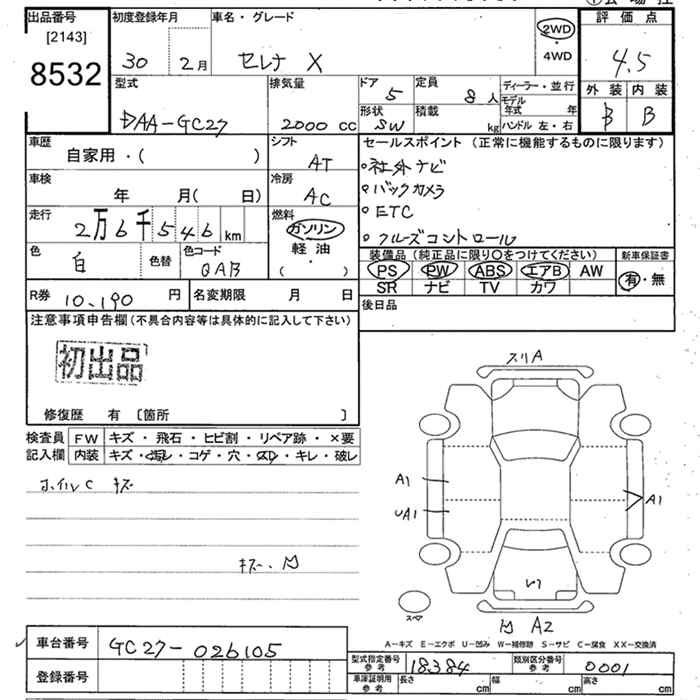 出品番号 初度登録年月 車名・グレード 評価点
[2143]
8532
30 2月 セレナ X 2WD 4.5
・
4WD
型式 排気量 ドア 5 定員 8人 ディーラー・並行 外装 内装
モデル年式 年
DAA-GC27 2000 cc 形状 SW 積載 kg ハンドル 左・右 B B
車歴 シフト セールスポイント (正常に機能するものに限ります)
自家用・( ) AT
車検 冷房
年 月( 日) AC
社外ナビ
バックカメラ
ETC
クルーズコントロール
走行 燃料
2万6千546 km ガソリン
・
軽油
・
( )
色 色替 色コード
白 QAB
装備品 (純正品に限り○をつけてください) 新車保証書
PS PW ABS エアB AW 有・無
SR ナビ TV カワ
R券 10,190 円 名変期限 月 日
後日品
注意事項申告欄(不具合内容等は具体的に記入して下さい)
初出品
修復歴 有 〔箇所 〕
検査員 FW キズ・飛石・ヒビ割・リペア跡・×要
記入欄 内装 キズ・汚レ・コゲ・穴・スレ・キレ・破レ
ホイルC キズ
キズ、凹
スリA
A1
UA1
A1
スペア
凹 A2
A-キズ E-エクボ U-凹み W-補修跡 S-サビ C-腐食 XX-交換済
車台番号 GC27-026105
登録番号
型式指定番号 参考 18384 類別区分番号 参考 0001
車庫証明用 参考 長さ cm 幅 cm 高さ cm